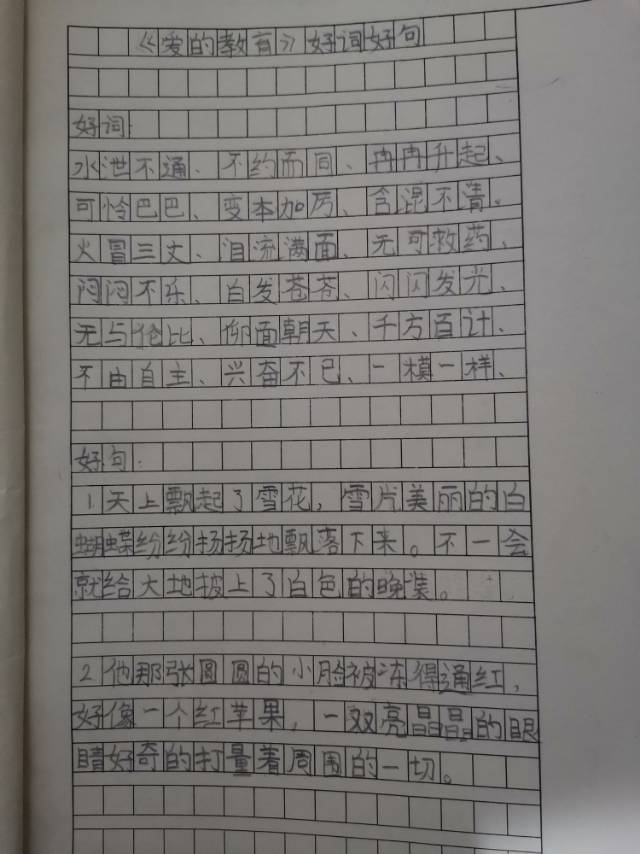 《爱的教育》好词好句
好词:
水泄不通、不约而同、冉冉升起、
可怜巴巴、变本加厉、含混不清。
火冒三丈、泪流满面、无可救药、
闷闷不乐、白发苍苍、闪闪发光、
无与伦比、仰面朝天、千方百计、
不由自主、兴奋不已、一模一样、
好句:
1天上飘起了雪花,雪片美丽的白
蝴蝶纷纷扬扬地飘落下来。不一会
就给大地披上了白色的晚装。
2他那张圆圆的小脸被冻得通红,
好像一个红苹果,一双亮晶晶的眼
睛好奇的打量着周围的一切。